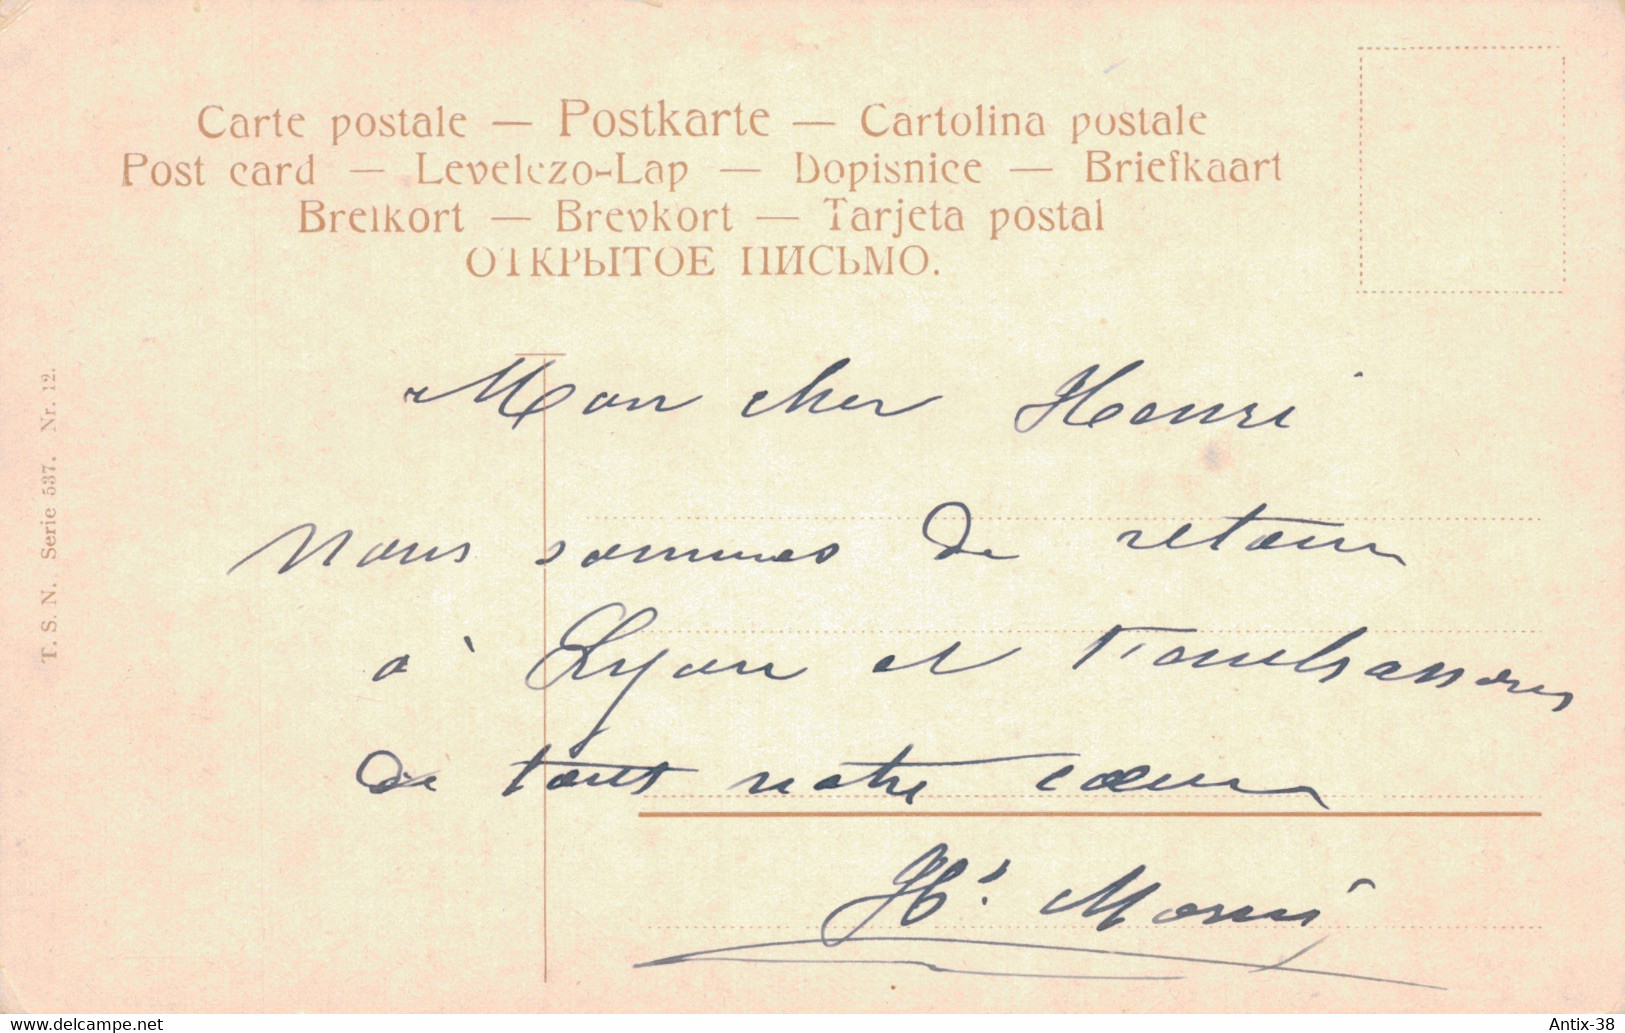 Carte postale — Postkarte — Cartolina postale
Post card — Levelezo-Lap — Dopisnice — Briefkaart
Brefkort — Brevkort — Tarjeta postal
ОТКРЫТОЕ ПИСЬМО.
T. S. N. Serie 537. Nr. 12.
Mon cher Henri
Nous sommes de retour
à Lyon et t'embrassons
de tout notre cœur
delcampe.net
Antix-38